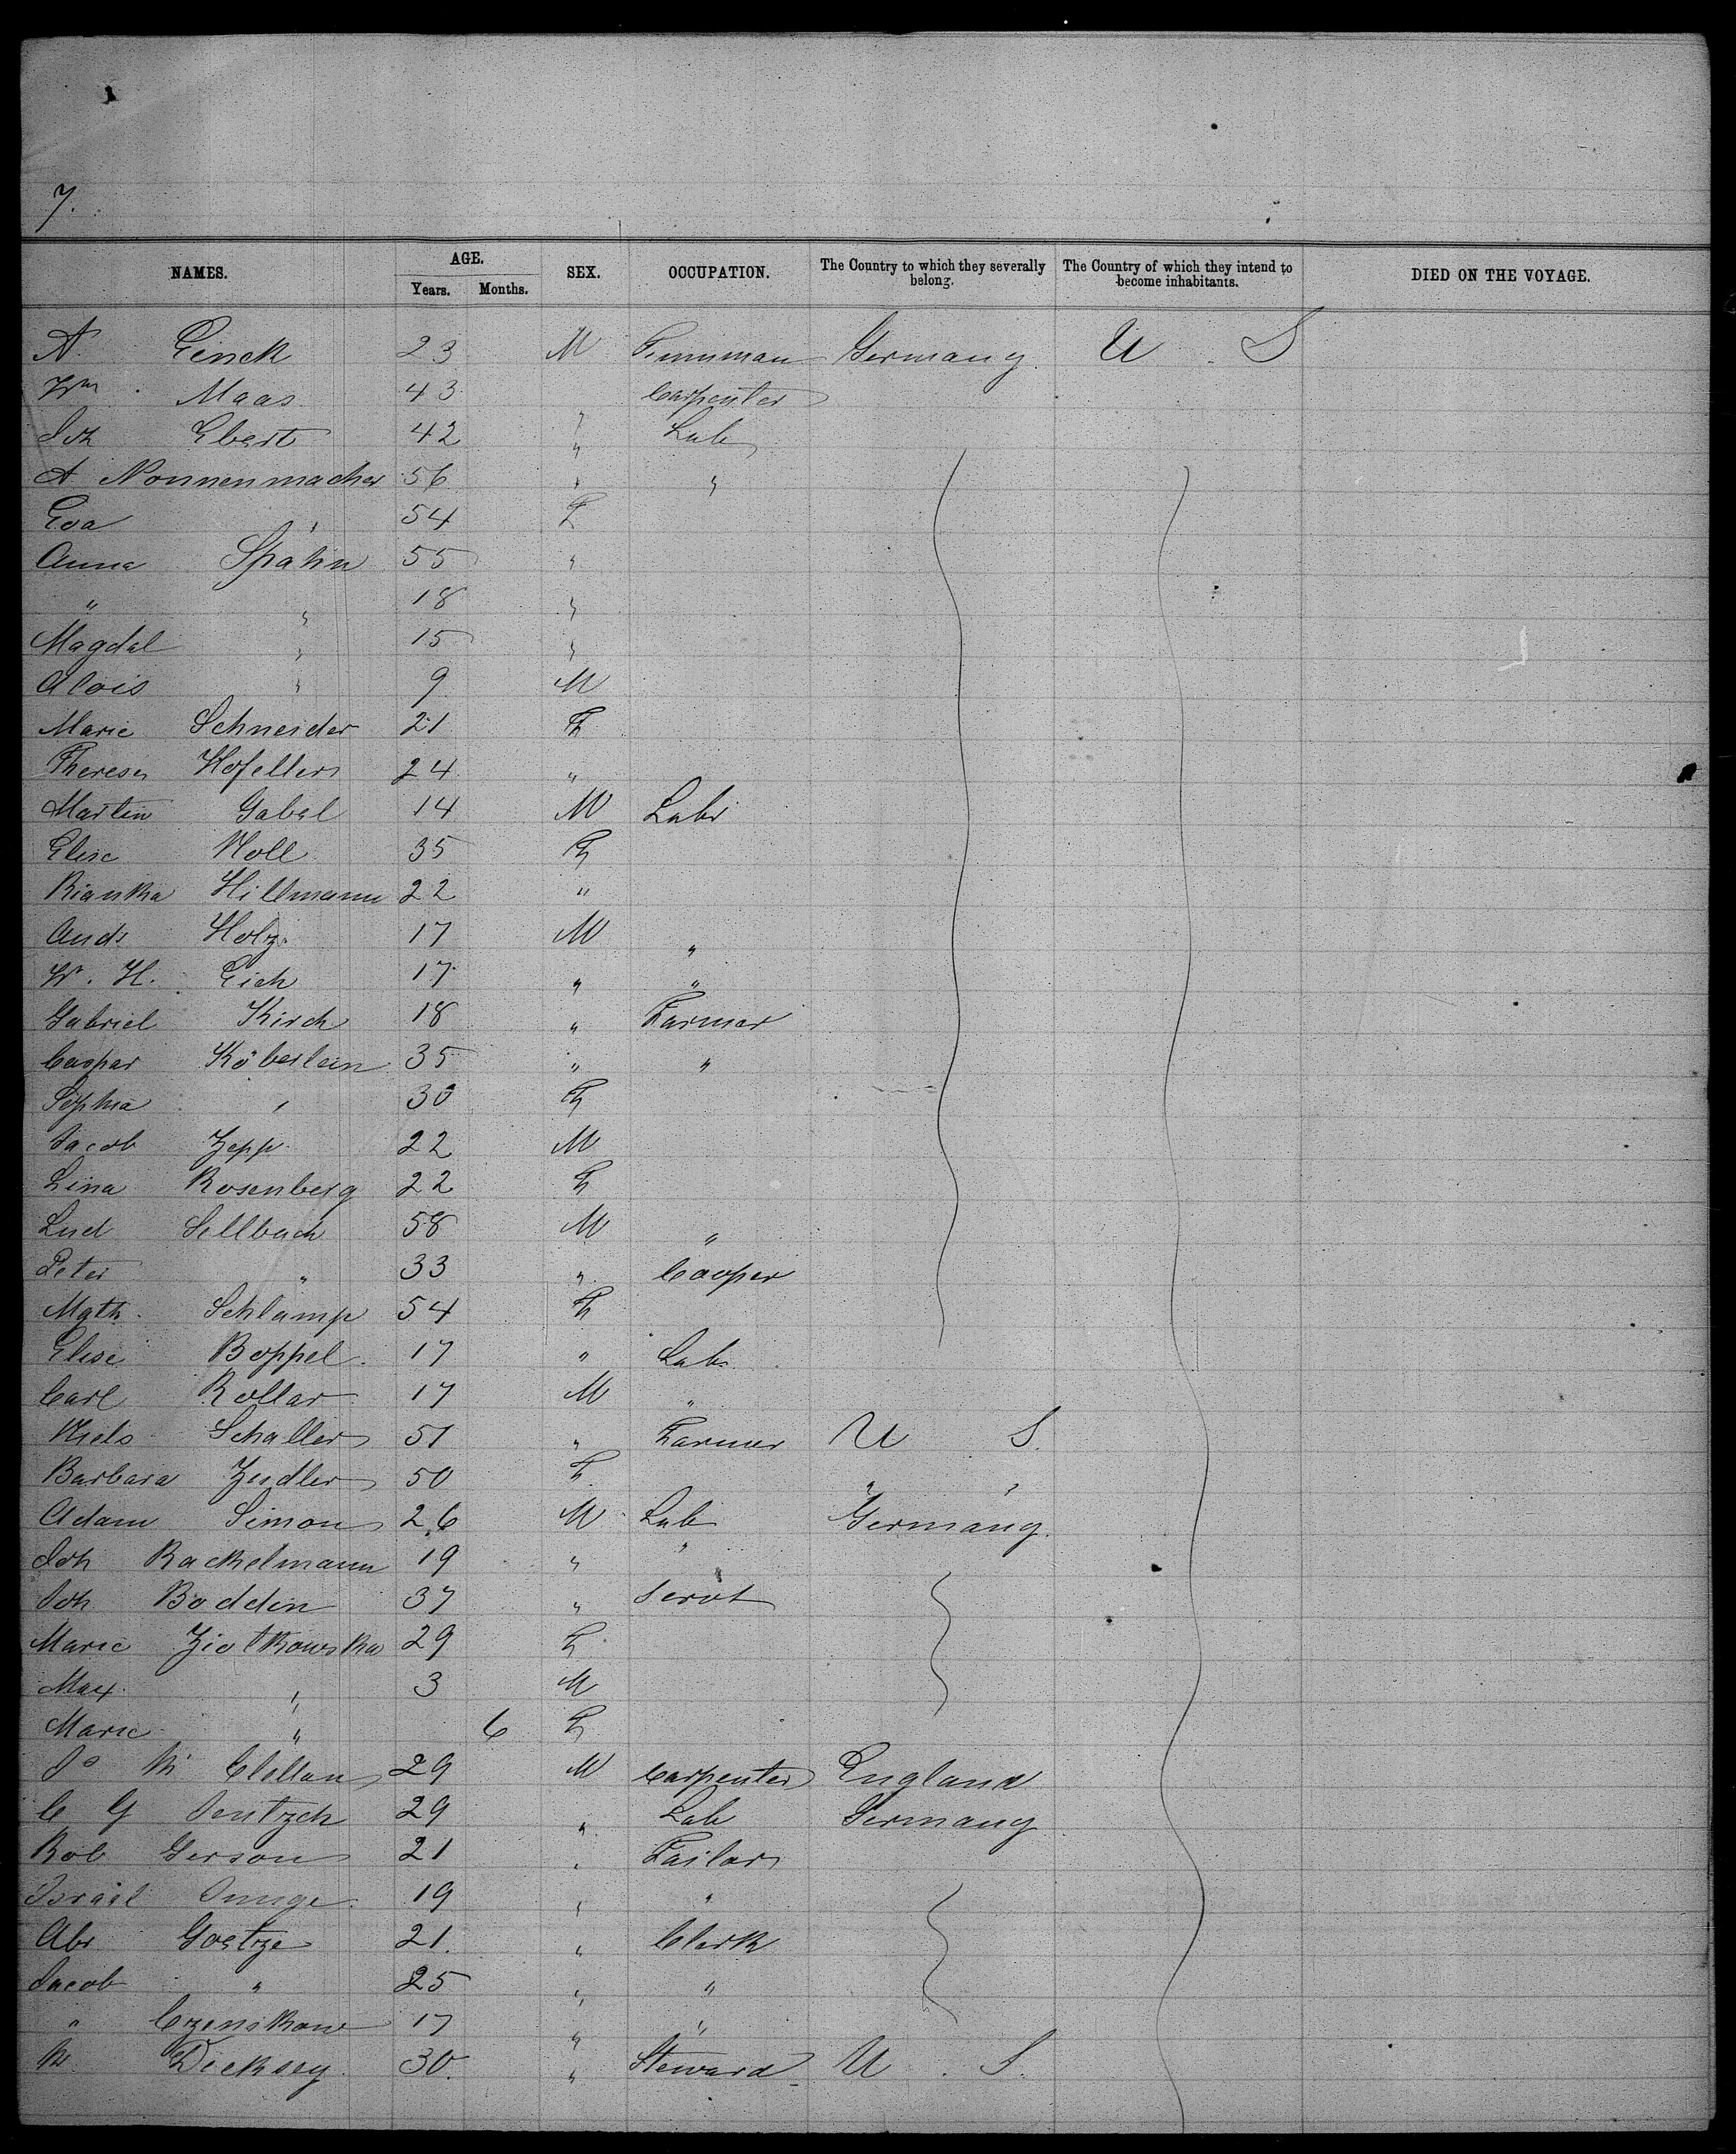 7.
NAMES. AGE. Years. Months. SEX. OCCUPATION. The Country to which they severally belong. The Country of which they intend to become inhabitants. DIED ON THE VOYAGE.
A. 23 M Germany U. S
Wm. Maas 43 Carpenter
Joh Ebert 42 " Lab
A Nonnenmacher 56 " "
Eva " 54 F
Anna Spahn 55 "
" " 18 "
Magdal " 15 "
Alois " 9 M
Marie Schneider 21 F
Therese Hofeller 24 "
Martin Gabel 14 M Labr
Elise Noll 35 F
Bianka Hillmann 22 "
Andr Holz 17 M "
W. H. Eich 17 " "
Gabriel Kirch 18 " Farmer
Caspar Köberlein 35 " "
Sophia " 30 F
Jacob Zepp 22 M
Lina Rosenberg 22 F
Lud Sellbach 58 M "
Peter " 33 " Cooper
Math. Schlamp 54 F
Elise Boppel. 17 " Lab.
Carl Kollar 17 M "
Niels Schaller 51 " Farmer U S.
Barbara 50 F " "
Adam Simon 26 M Lab Germany.
Joh Rackelmann 19 " "
Joh Boddin 37 " Servt
Marie Ziotkowska 29 F
Max " 3 M
Marie " 6 F
Jo Mc Clellan 29 M Carpenter England
C G Jentzch 29 " Lab Germany
Rob Gerson 21 " Tailor
Israel 19 " "
Abr Goetze 21. " Clerk
Jacob " 25 " "
" Czenskow 17 " "
M Dicksey. 30. " Steward U. S.